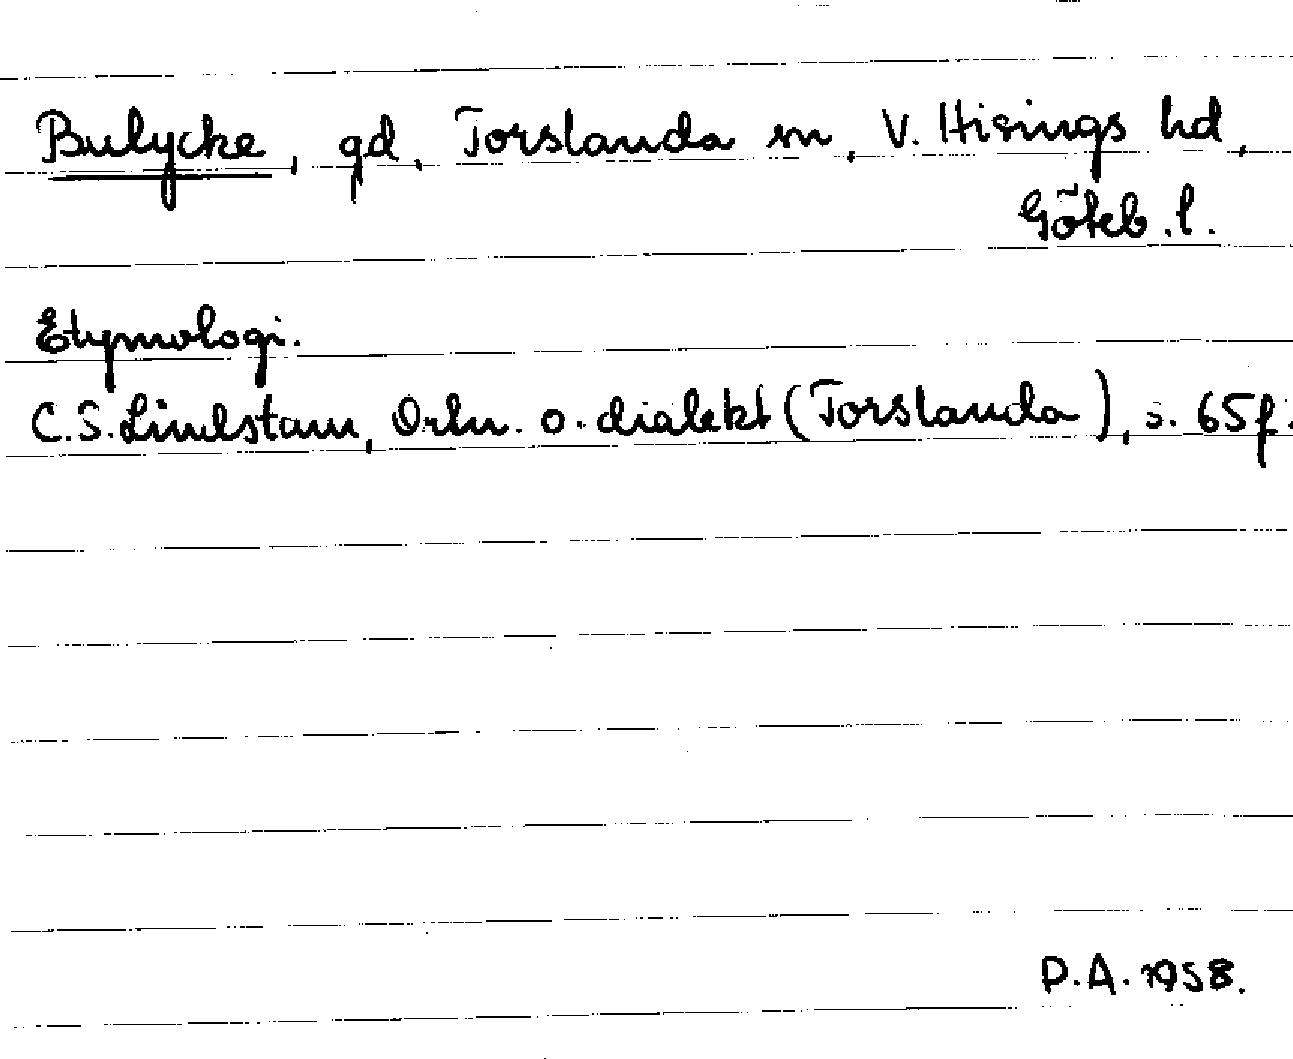 Bulycke, gd, Torslanda sn, V. Hisings hd,
Göteb. l.
Etymologi.
C.S. Lindstam, Ortn. o. dialekt (Torslanda), s. 65 f.
P.A. 1958.